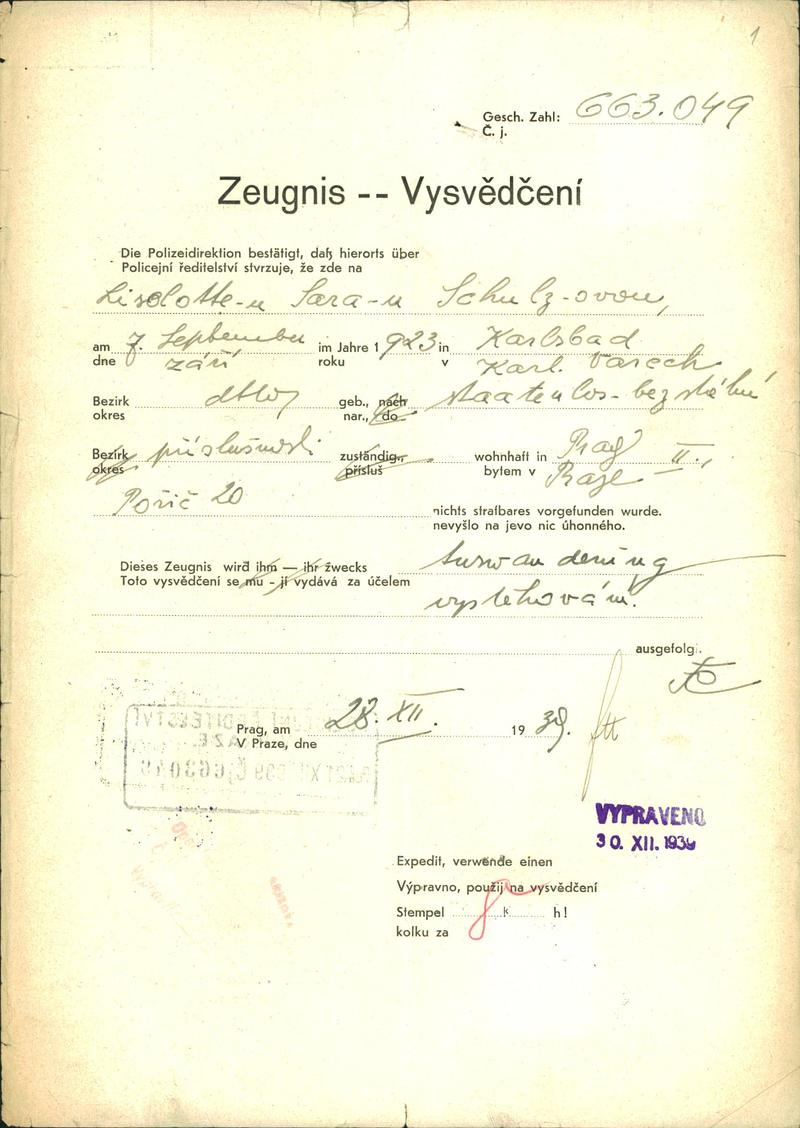 1
Gesch. Zahl: 663.049
Č. j.
Zeugnis -- Vysvědčení
Die Polizeidirektion bestätigt, daß hierorts über
Policejní ředitelství stvrzuje, že zde na
Liselotte-u Sara-u Schulz-ovou,
am 7. September im Jahre 1 923 in Karlsbad
dne září roku v Karl. Varech
Bezirk dtto, geb., nach staatenlos - bez státní
okres nar., do
Bezirk příslušnosti zuständig, wohnhaft in Prag II.,
okres přísluš bytem v Praze
Pořič 20 nichts strafbares vorgefunden wurde.
nevyšlo na jevo nic úhonného.
Dieses Zeugnis wird ihm — ihr zwecks
Toto vysvědčení se mu - jí vydává za účelem
vystěhování.
ausgefolgt.
Prag, am 28. XII. 19 39.
V Praze, dne
VYPRAVENO
30. XII. 1939
Expedit, verwende einen
Výpravno, použij na vysvědčení
Stempel k h!
kolku za